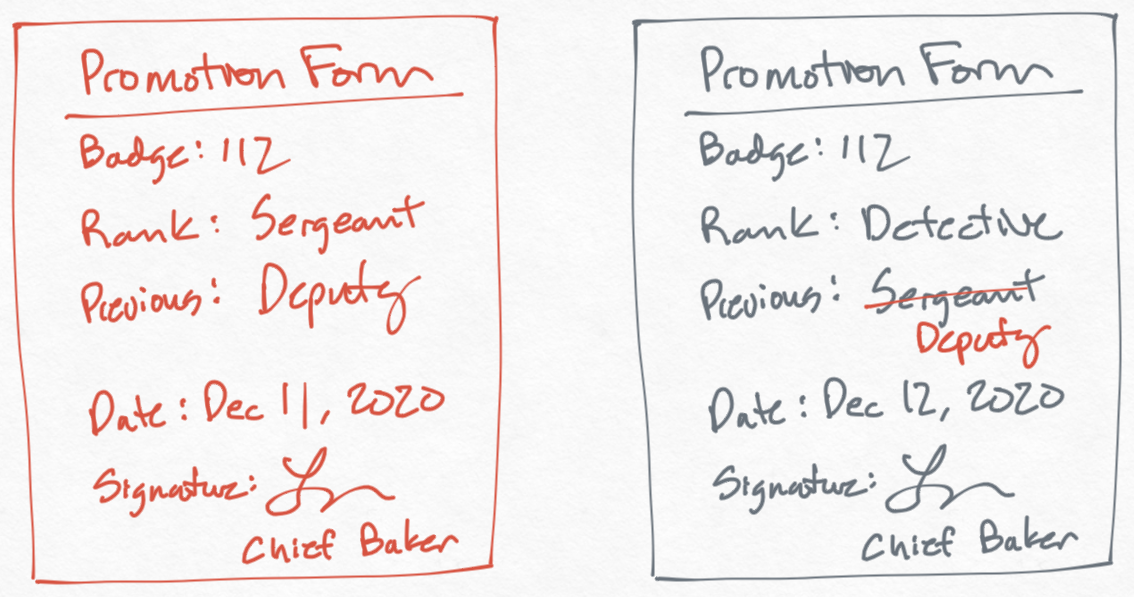 Promotion Form
Badge: 112
Rank: Sergeant
Previous: Deputy
Date: Dec 11, 2020
Signature:
Chief Baker
Promotion Form
Badge: 112
Rank: Detective
Previous: Sergeant
Deputy
Date: Dec 12, 2020
Signature:
Chief Baker